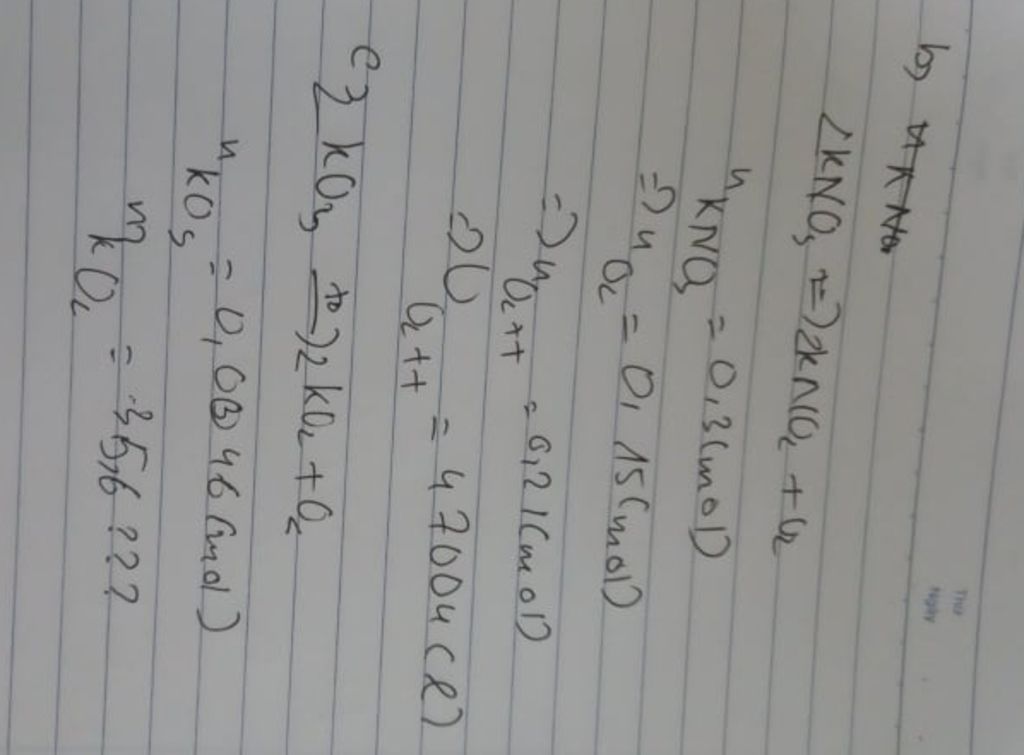 Thứ
Ngày
b)
2KNO3 t=> 2KNO2 + O2
n KNO3 = 0,3 (mol)
=> n O2 = 0,15 (mol)
=> n O2 tt = 0,21 (mol)
=> V O2 tt = 4,7004 (l)
c) 2 KO3 to=> 2 KO2 + O2
n KO3 = 0,0346 (mol)
m KO2 = 35,6 ???